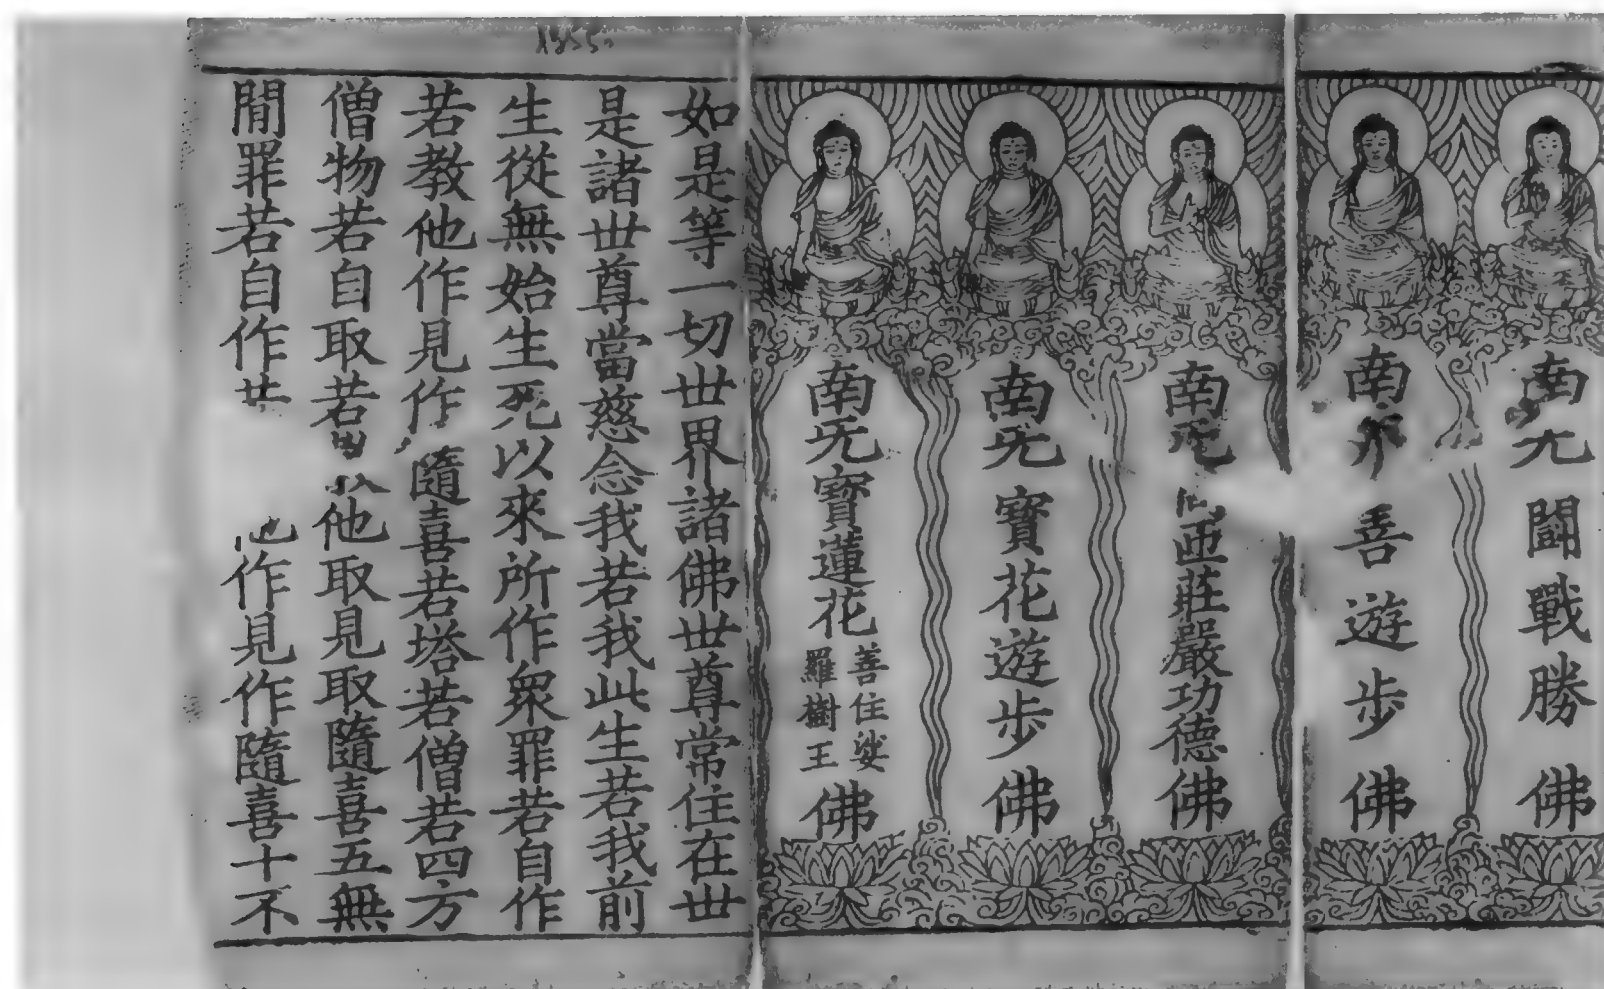 南无鬪戰勝佛
南善遊步佛
南无匝莊嚴功德佛
南无寶花遊步佛
南无寶蓮花善住娑羅樹王佛
如是等一切世界諸佛世尊常住在世
是諸世尊當慈念我若我此生若我前
生從無始生死以來所作衆罪若自作
若教他作見作隨喜若塔若僧若四方
僧物若自取若他取見取隨喜五無
間罪若自作他作見作隨喜十不